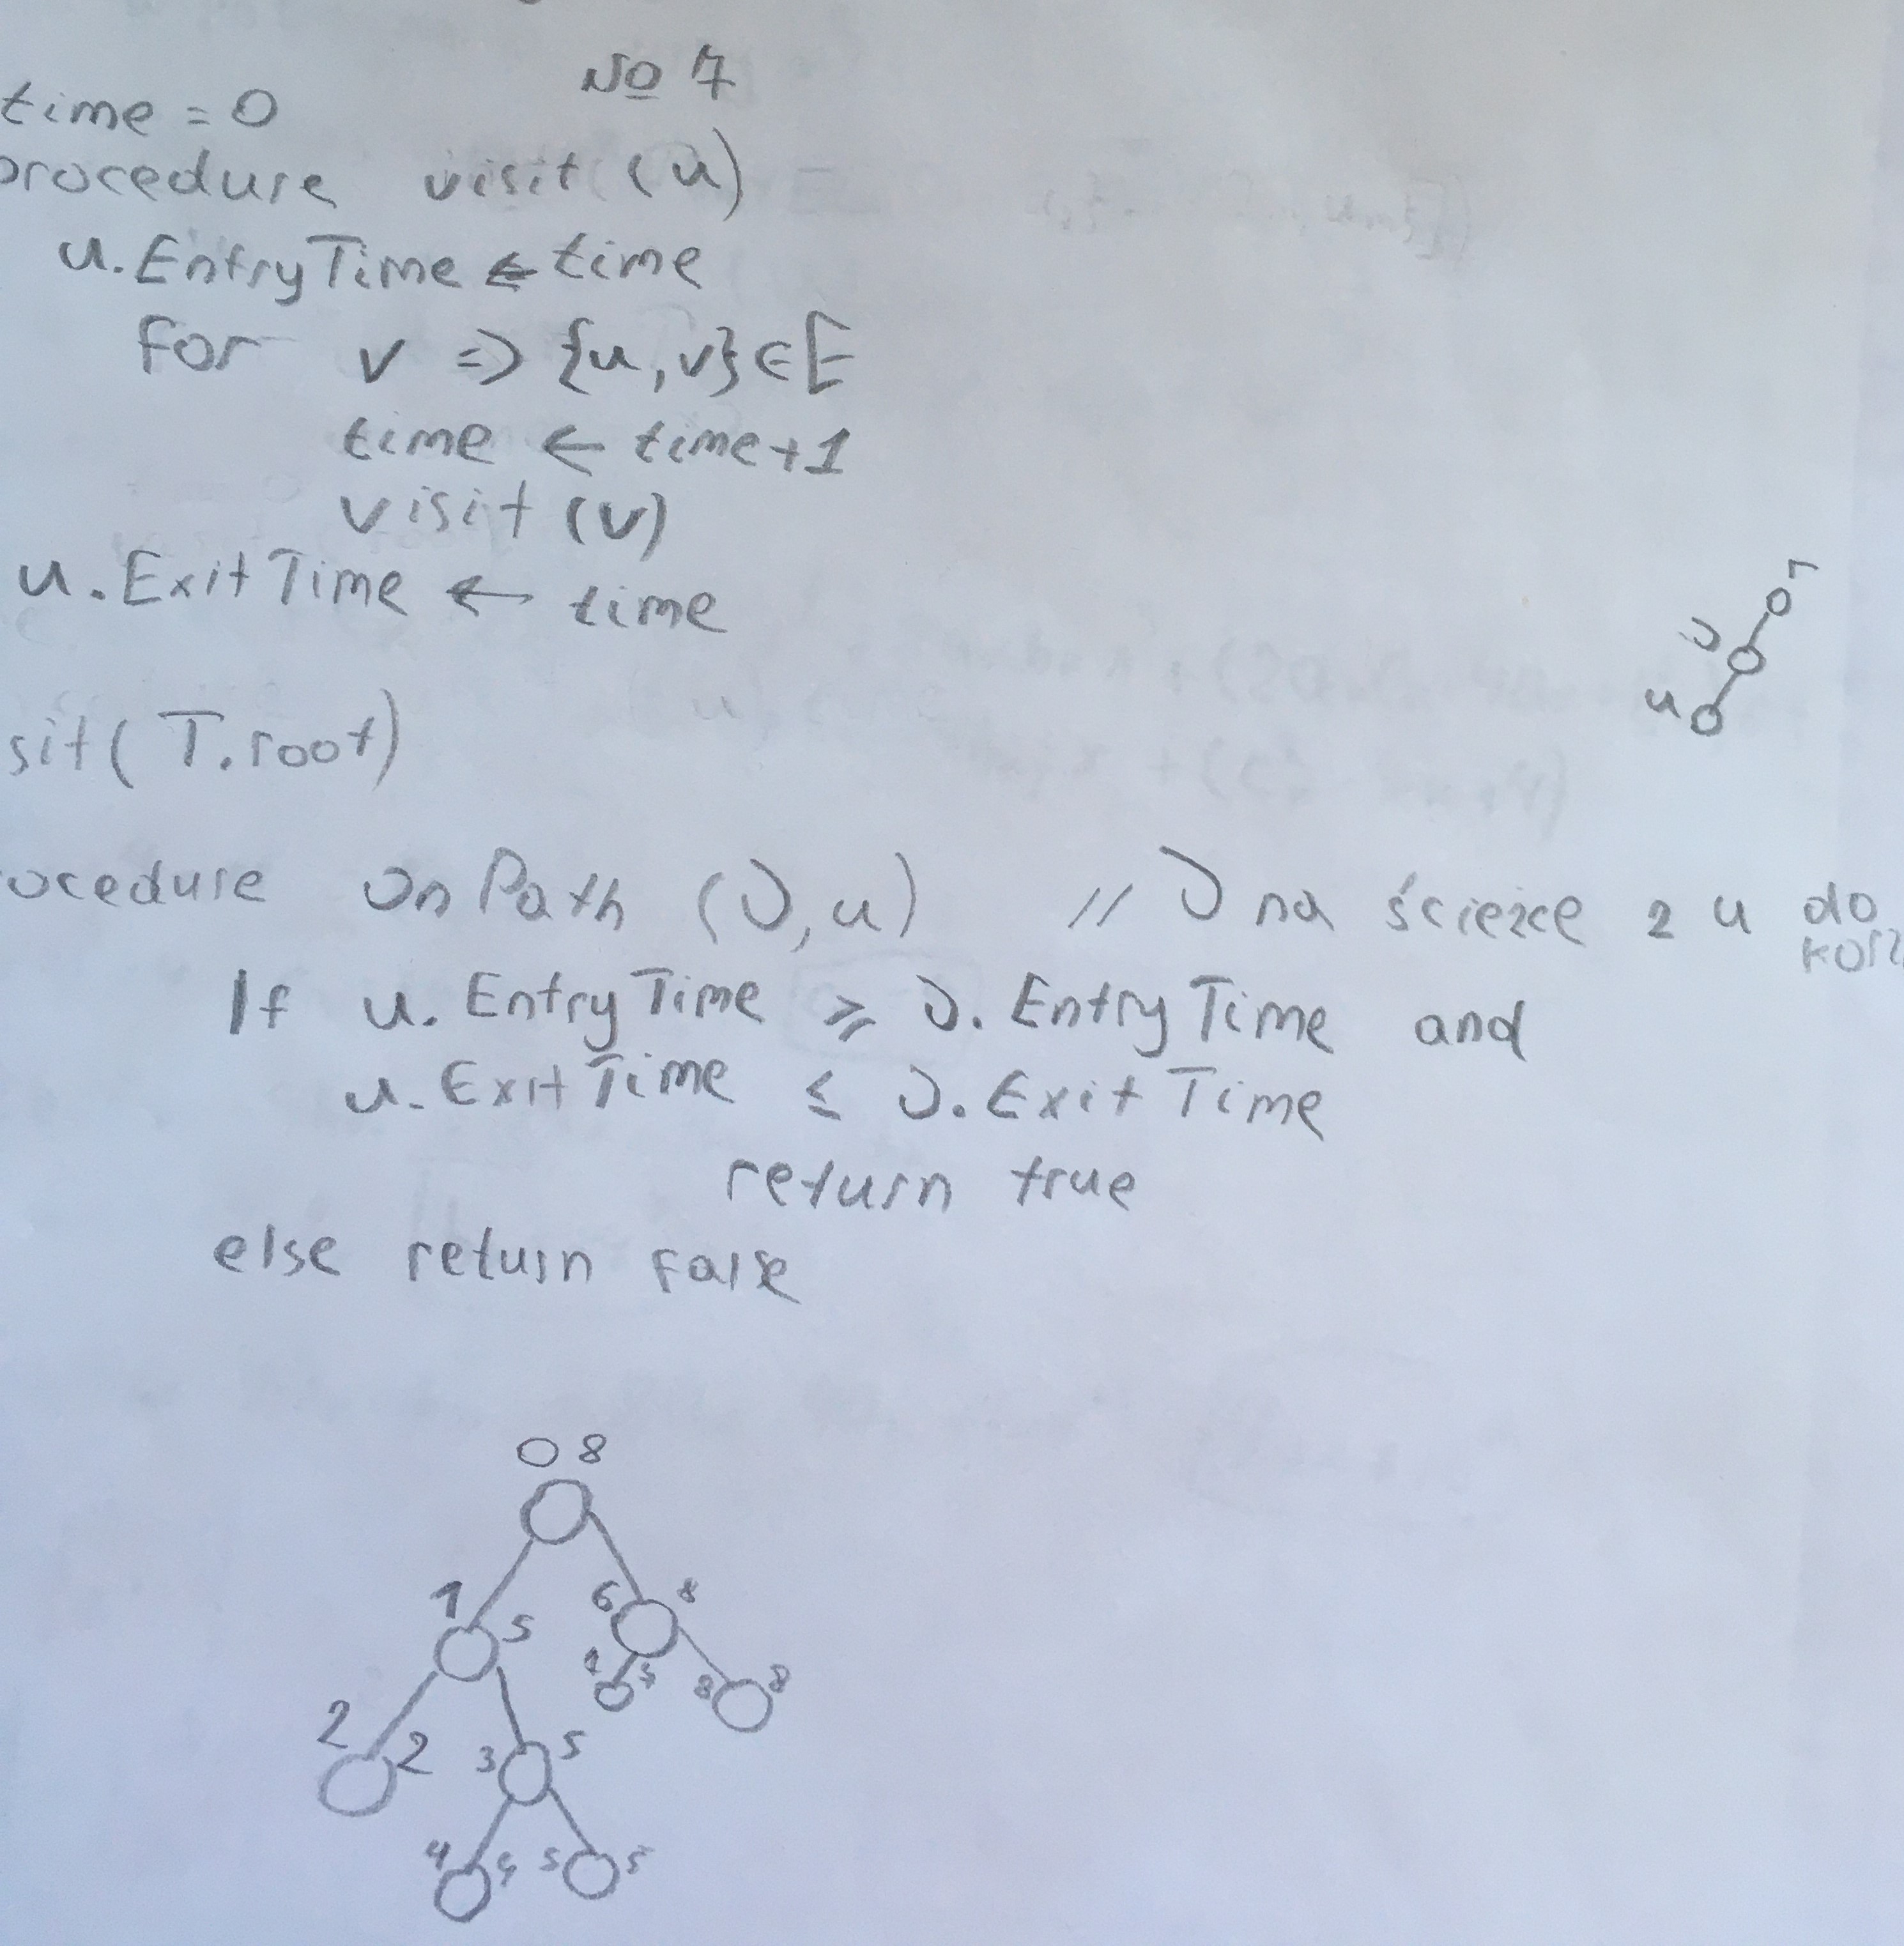 № 7
time = 0
procedure visit (u)
u.EntryTime ← time
for v => {u,v} ∈ E
time ← time+1
visit (v)
u.ExitTime ← time
sit(T.root)
ocedure OnPath (v,u) // v na ścieżce z u do
u.EntryTime ≥ v.EntryTime and
If u.EntryTime ≥ v.EntryTime and
u.ExitTime ≤ v.ExitTime
return true
else return false
v
u
0 8
1 5 6 8
7 8 8
2 2 3 5
4 4 5 5